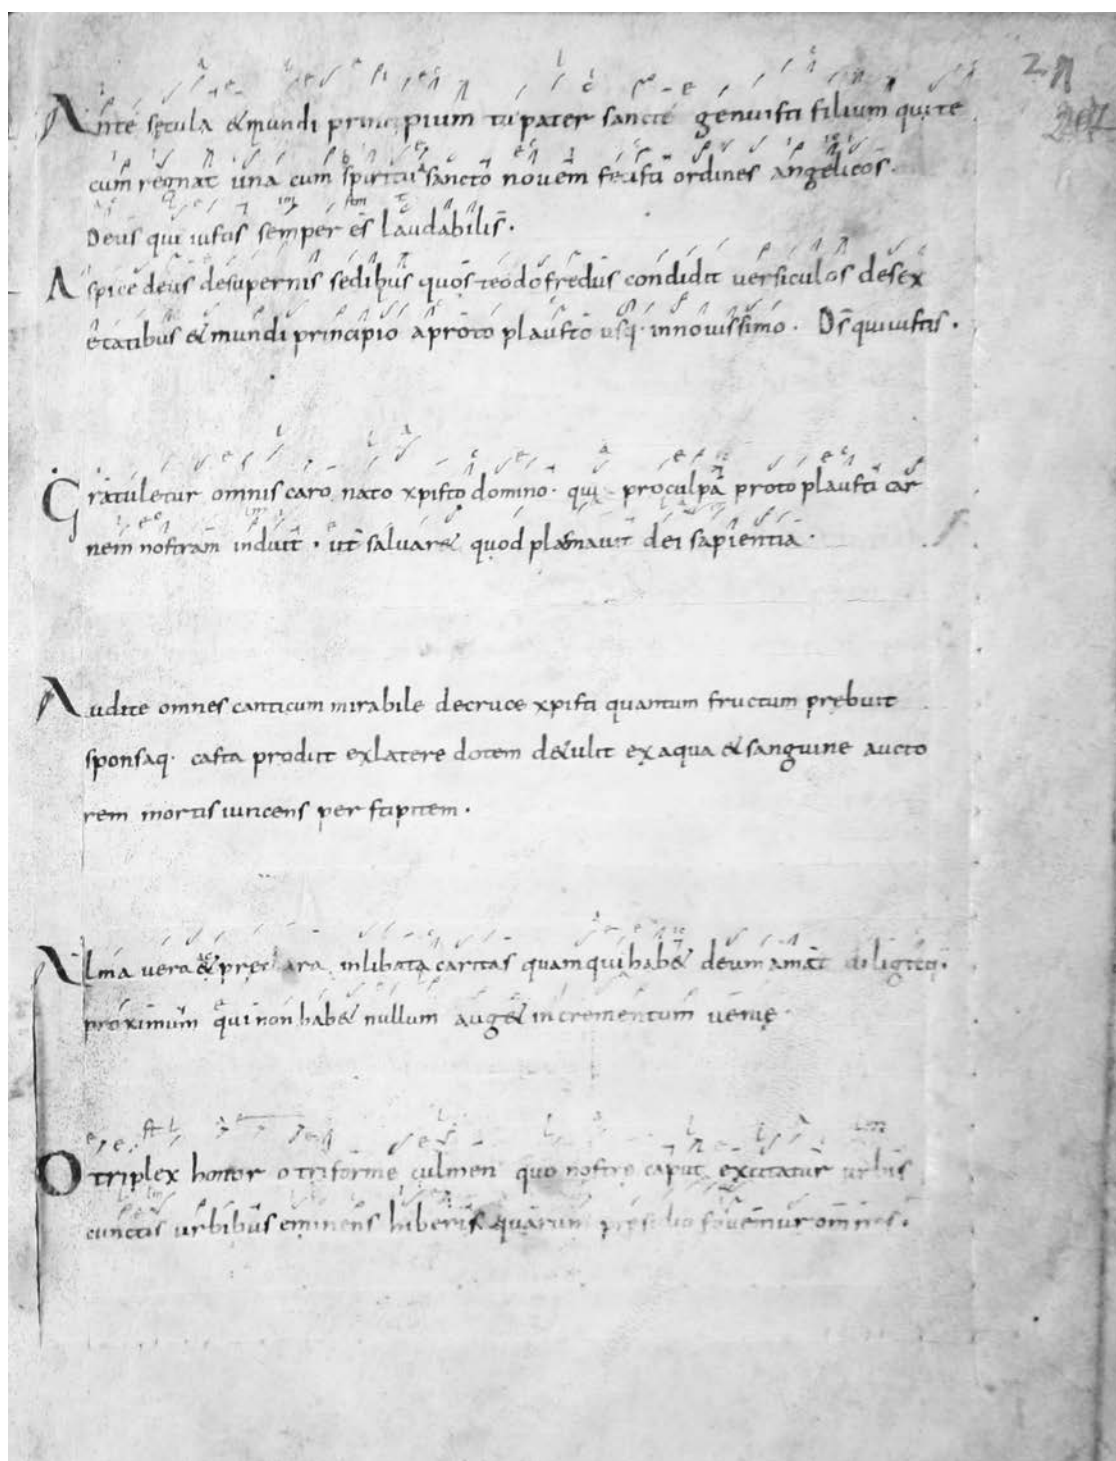 Ante sęcula & mundi principium tu pater sancte genuisti filium qui te
cum regnat una cum spiritu sancto novem fecisti ordines angelicos.
Deus qui iustis semper es laudabilis.
Aspice deus de supernis sedibus quos teodofredus condidit versiculos de sex
etatibus & mundi principio a proto plausto usq. in novissimo. Ds̄ qui iustis.
Gratuletur omnis caro nato xpisto domino. qui pro culpa proto plausti car
nem nostram induit. ut salvar& quod plasmavit dei sapientia.
Audite omnes canticum mirabile de cruce xpisti quantum fructum prębuit
sponsaq. casta prodiit ex latere dotem de&ulit ex aqua & sanguine aucto
rem mortis iuncens per stipitem.
Alma vera & pręclara inlibata caritas quam qui hab& deum amat diligitq.
proximum qui non hab& nullum aug& incrementum venię.
O triplex honor o triforme culmen quo nostrę caput excitatur urbis
cunctis urbibus eminens hiberis quarum pręsidio fovemur omnes.